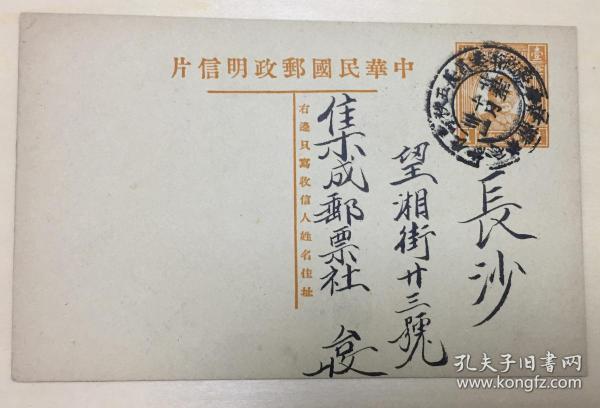 中華民國郵政明信片
右邊只寫收信人姓名住址
長沙
望湘街廿三號
集成郵票社 台啟
孔夫子旧书网
www.kongfz.com